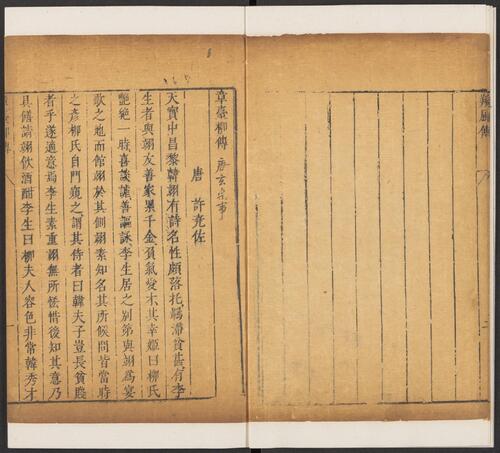 章臺柳傳 唐玄宗事
唐 許堯佐
天寶中昌黎韓翊有詩名性頗落托羈滯貧甚有李
生者與翊友善家累千金負氣愛才其幸姬曰柳氏
艷絶一時喜談謔善謳詠李生居之别第與翊爲宴
歌之地而館翊於其側翊素知名其所候問皆當時
之彥柳氏自門窺之謂其侍者曰韓夫子豈長貧賤
者乎遂適意焉李生素重翊無所恡惜後知其意乃
具饍請翊飲酒酣李生曰柳夫人容色非常韓秀才